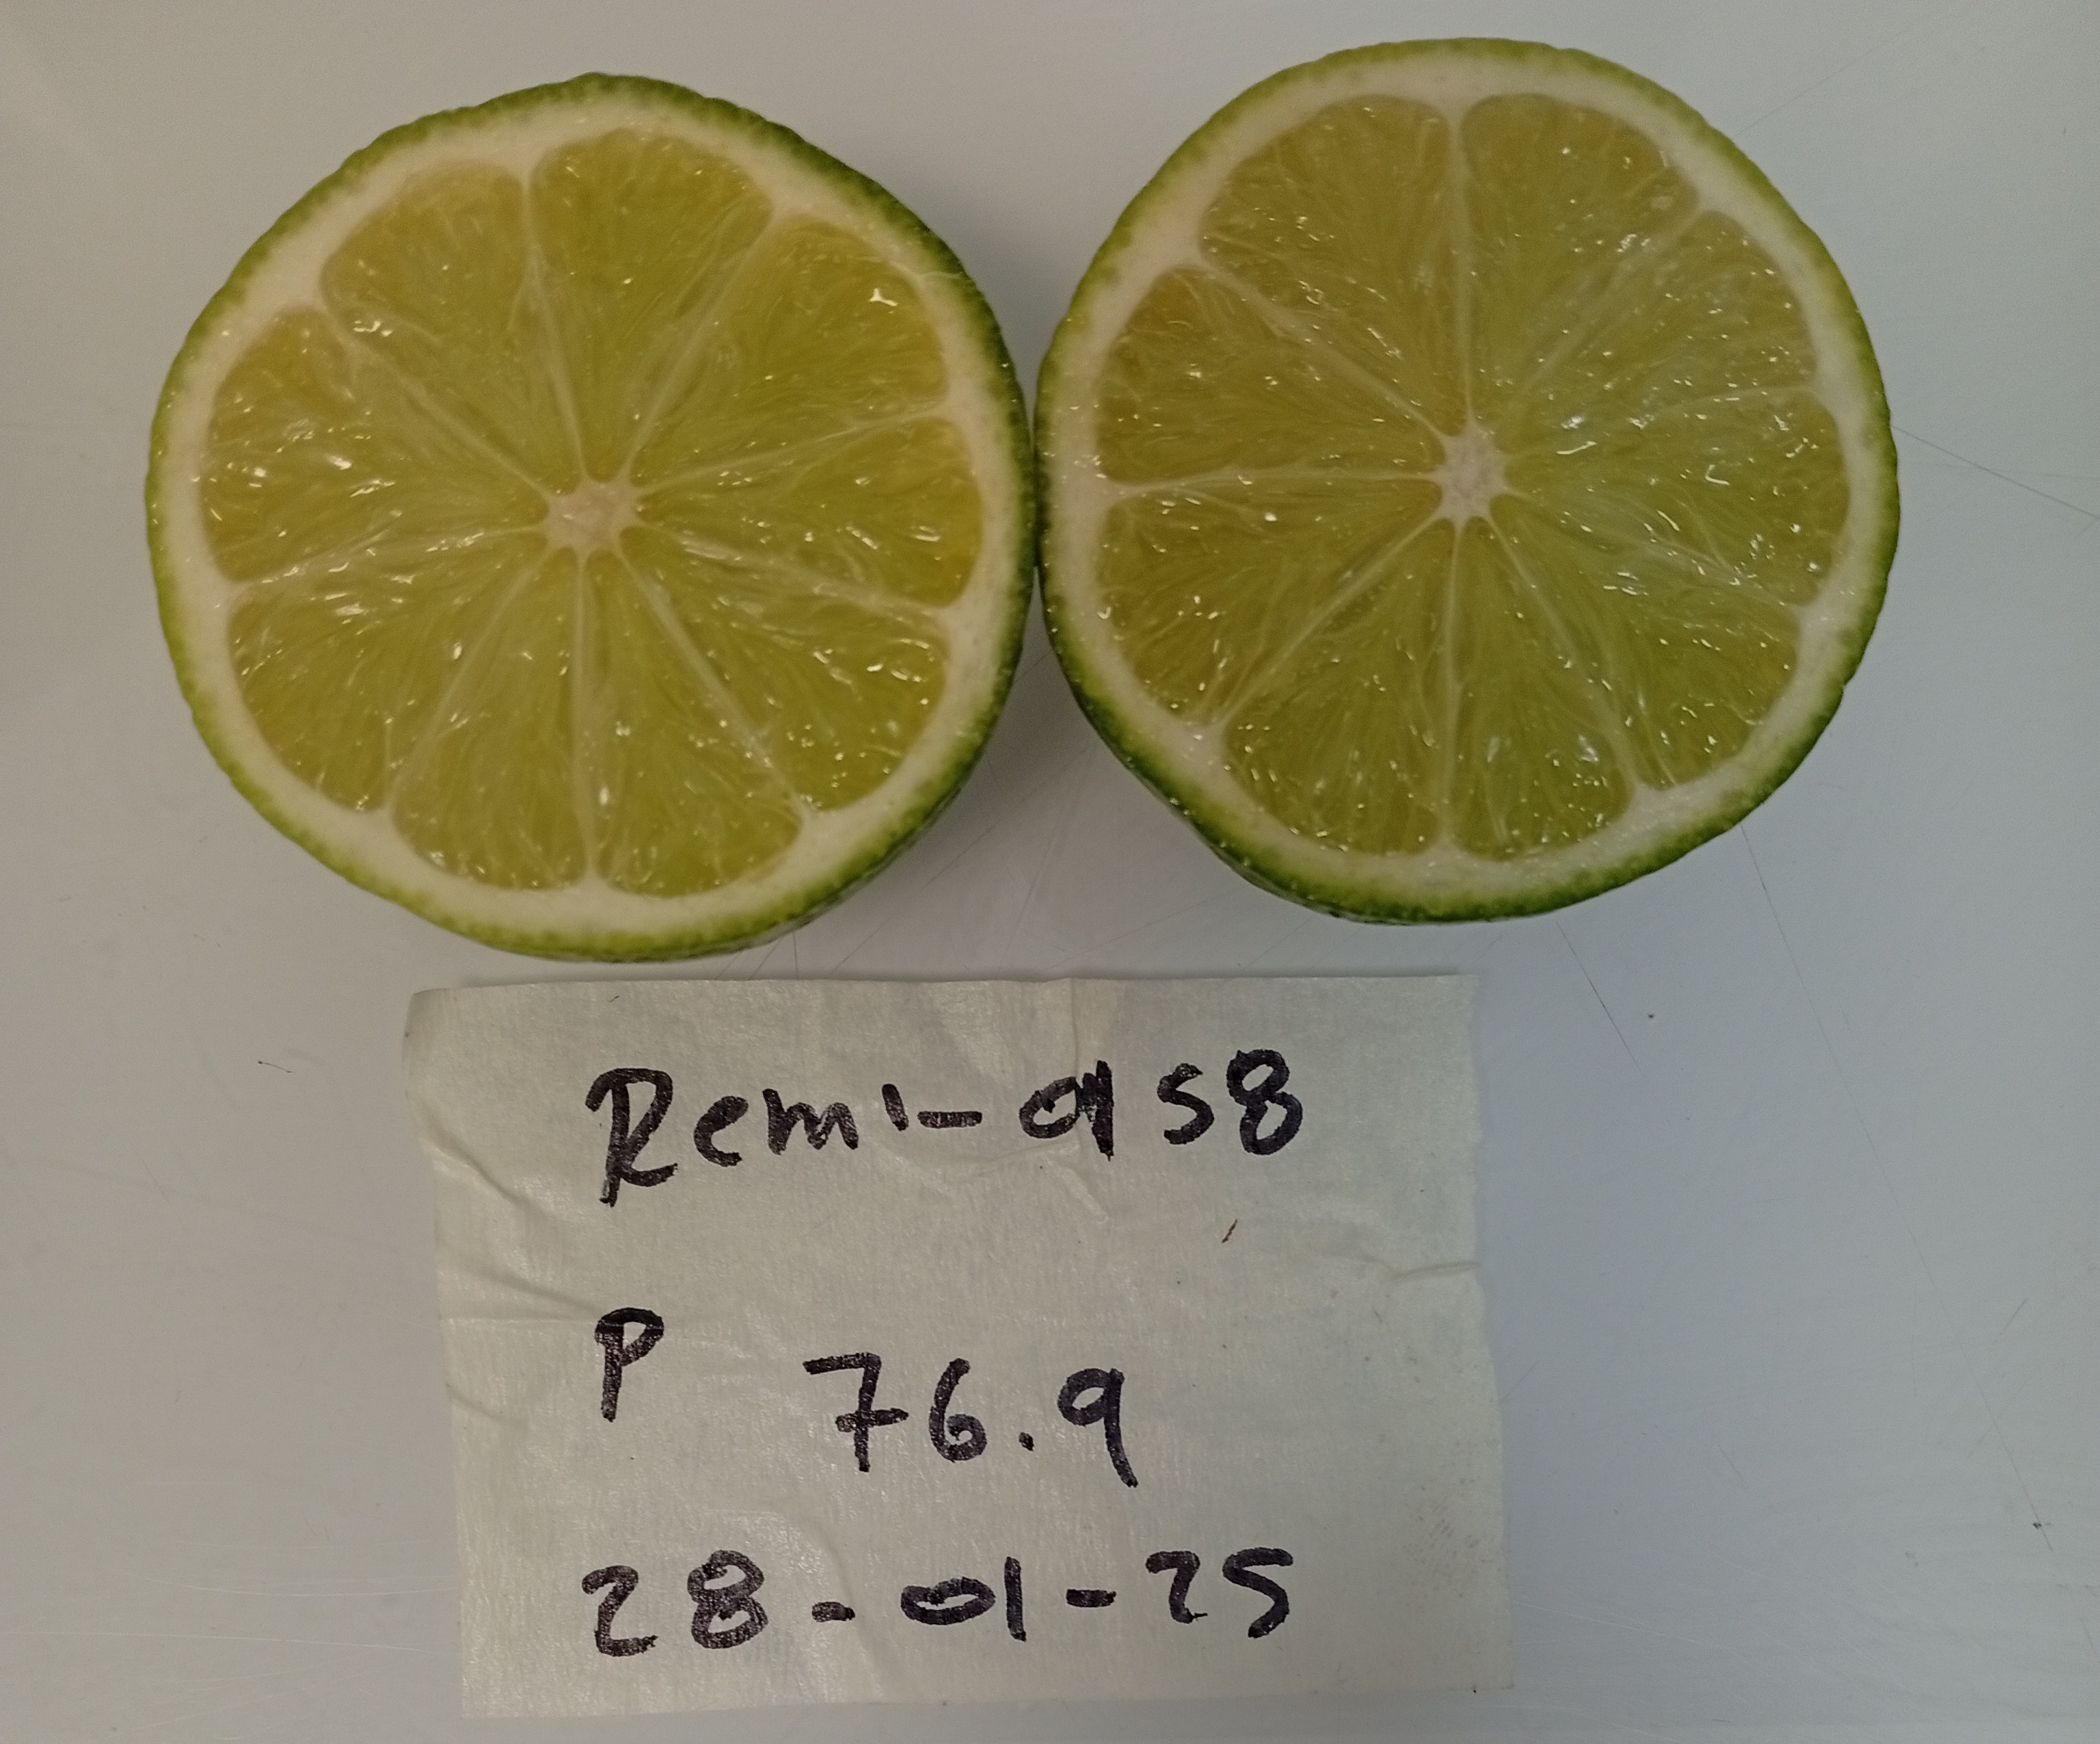 Remi-0158
P
76.9
28-01-25